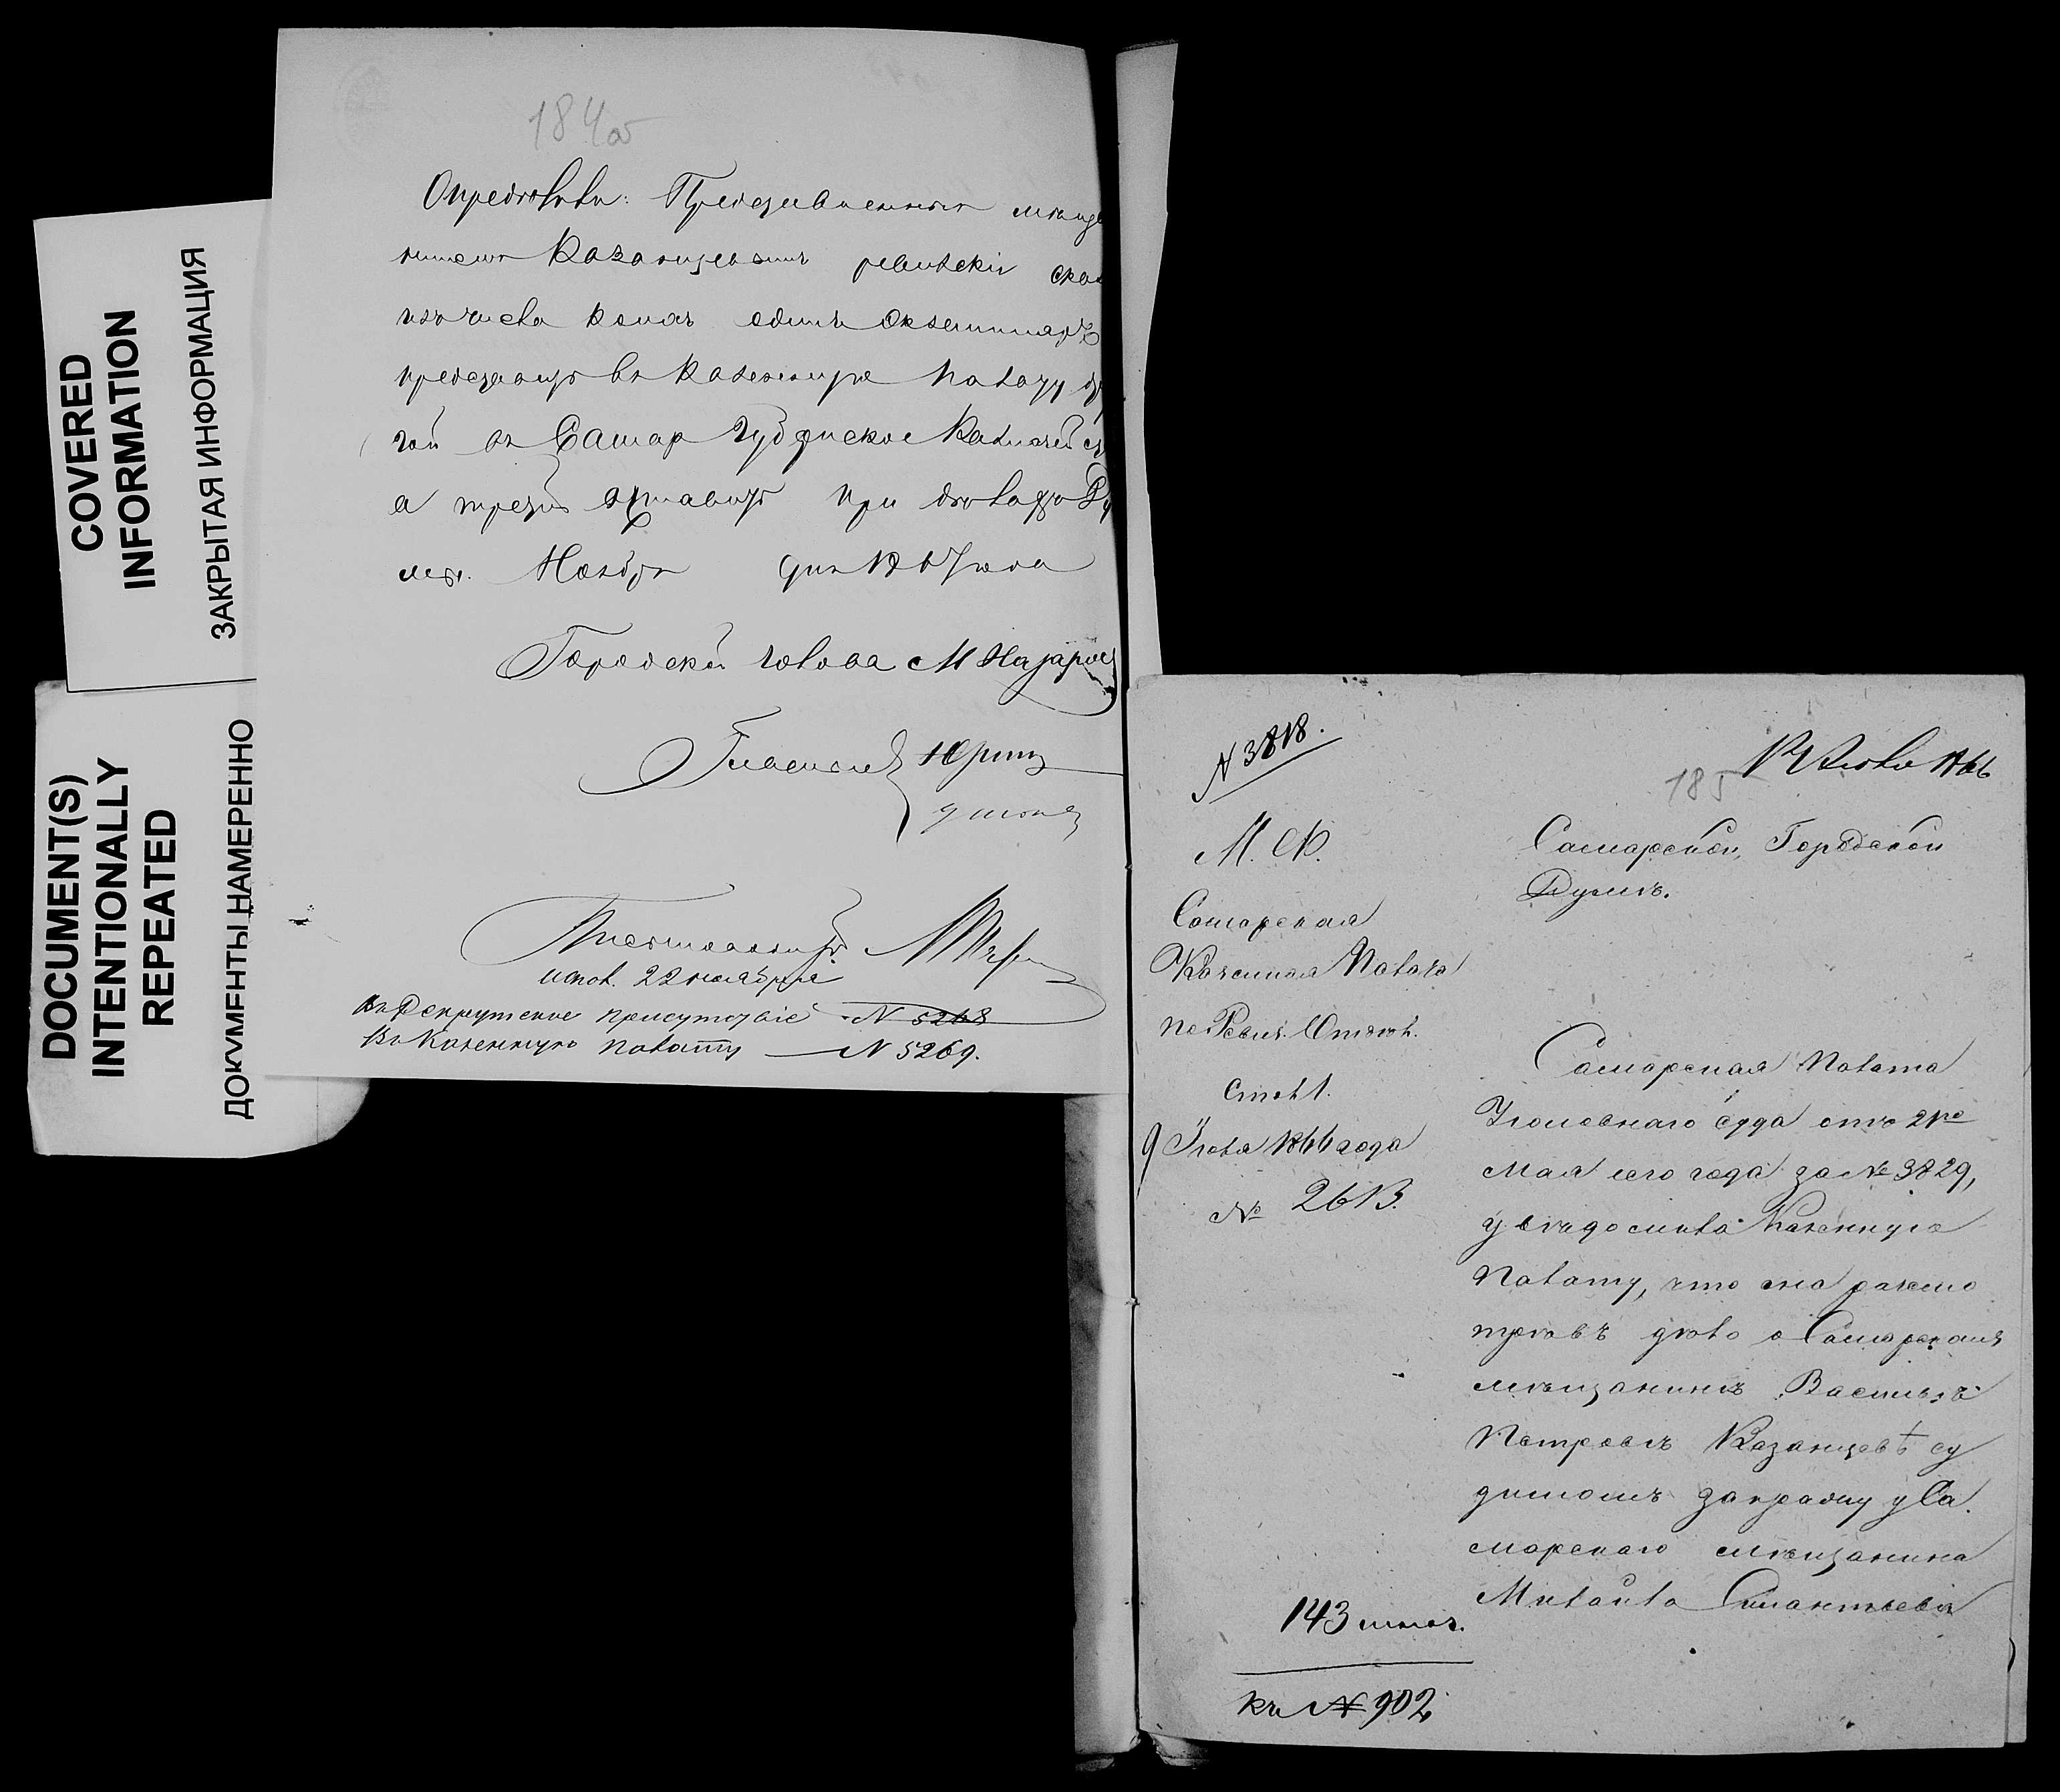 COVERED
INFORMATION
ЗАКРЫТАЯ ИНФОРМАЦИЯ
DOCUMENT(S)
INTENTIONALLY
REPEATED
ДОКУМЕНТЫ НАМЕРЕННО
184об
Определили: Представленныя мѣща
ниномъ Казанцевымъ ревизскія сказ
изъ числа коихъ одинъ экземпляръ
представить въ Казенную Палату дру
гой въ Самар Губернское Казначейст
а третій оставить при дѣлахъ Ду
мы. Ноября дня 1865 года
Городской голова М Назаров
Гласный Юринъ
испол. 22 ноября
въ Рекрутское присутствіе № 5268
въ Казенную палату № 5269.
№ 3818.
185
12 Июля 1866
М. Ф.
Самарская
Казенная Палата
по Ревиз. Отдѣл.
Столъ 1.
9 Іюля 1866 года
№ 2613.
143 мѣщ.
къ № 902
Самарской Городской
Думѣ.
Самарская Палата
Уголовнаго суда отъ 21го
мая сего года за № 3829,
увѣдомила Казенную
Палату, что она разсмо
трѣвъ дѣло о Самарскомъ
мѣщанинѣ Васильѣ
Петровѣ Казанцевѣ су
димомъ за кражу у Са
марскаго мѣщанина
Михаила